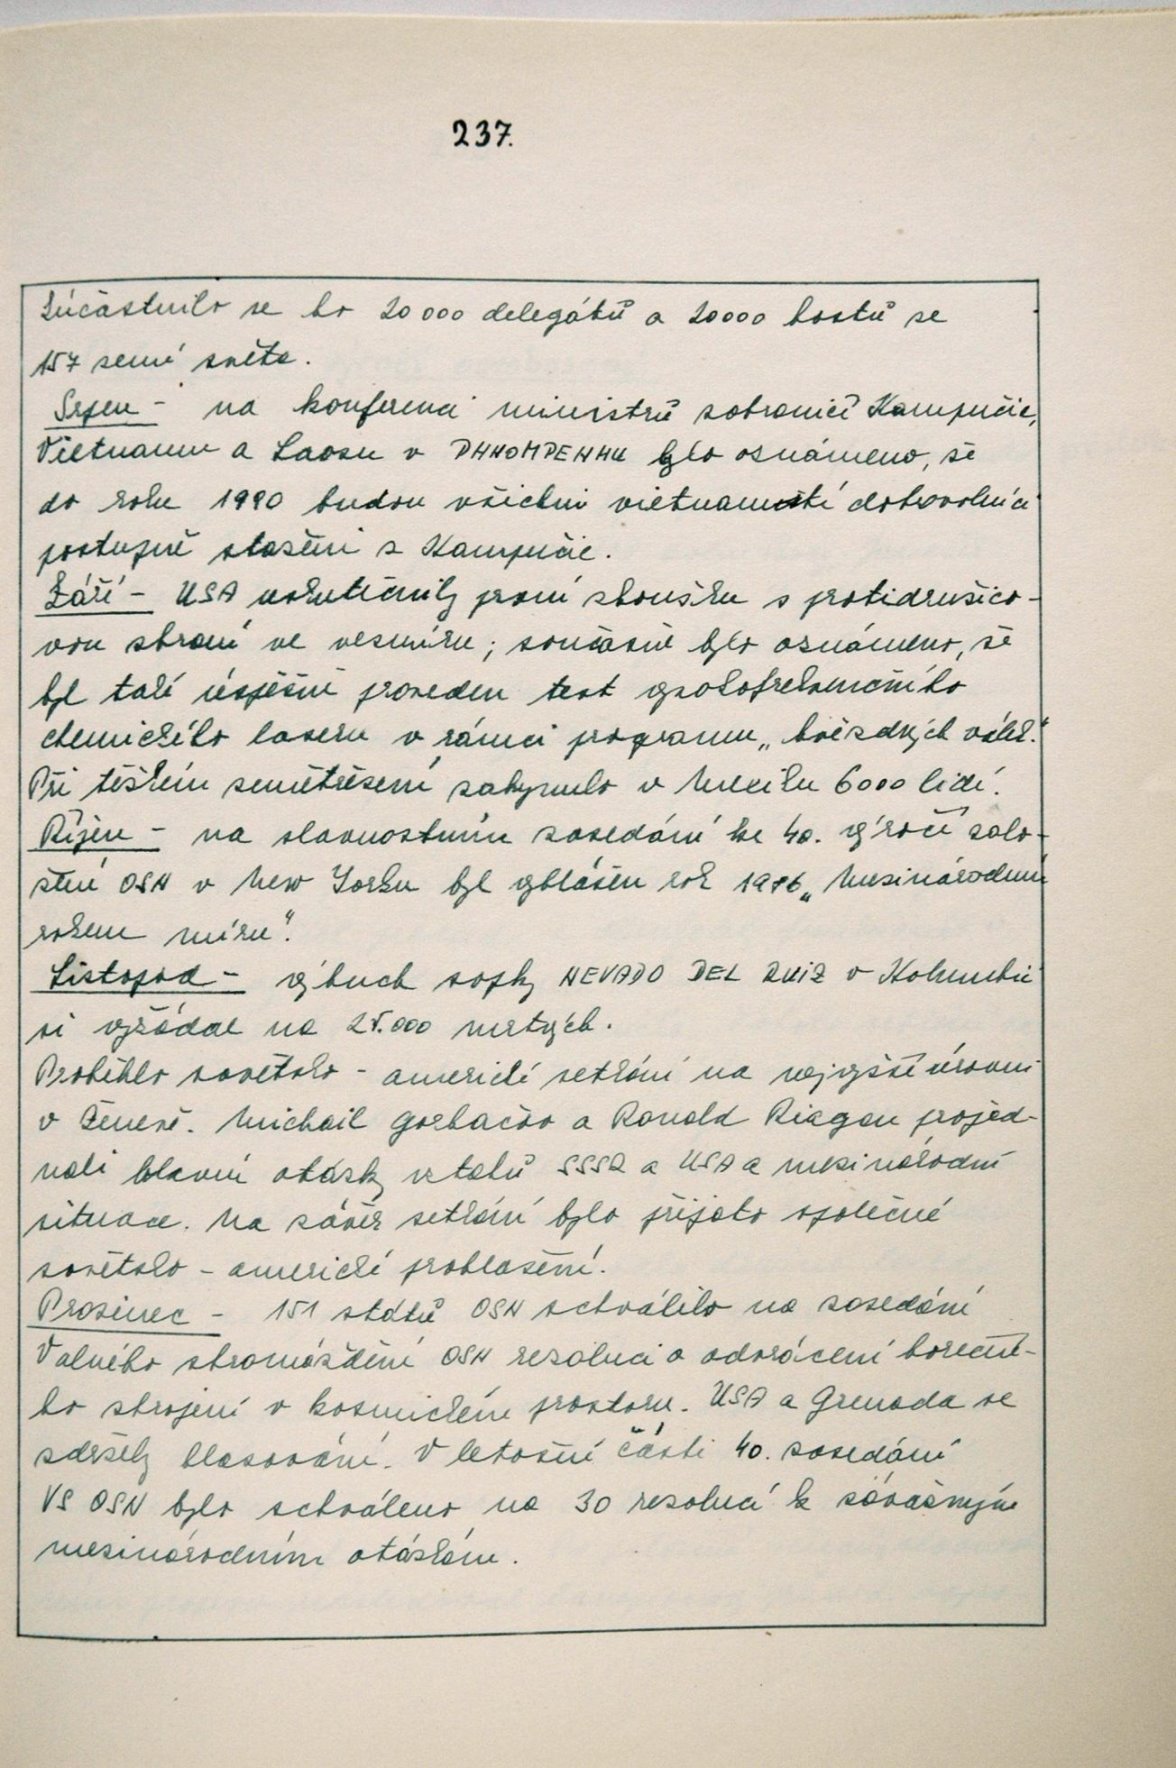 237.
Zúčastnilo se ho 20 000 delegátů a 20000 hostů ze
157 zemí světa.
Srpen - na konferenci ministrů zahraničí Kampučie,
Vietnamu a Laosu v PHNOMPENHU bylo oznámeno, že
do roku 1990 budou všichni vietnamští dobrovolníci
postupně staženi z Kampučie.
Září - USA uskutečnily první zkoušku s protidružico-
vou zbraní ve vesmíru; současně bylo oznámeno, že
byl také úspěšně proveden test vysokofrekvenčního
chemického laseru v rámci programu „hvězdných válek."
Při těžkém zemětřesení zahynulo v Mexiku 6000 lidí.
Říjen - na slavnostním zasedání ke 40. výročí zalo-
žení OSN v New Yorku byl vyhlášen rok 1986 „Mezinárodním
rokem míru".
Listopad - výbuch sopky NEVADO DEL RUIZ v Kolumbii
si vyžádal na 25.000 mrtvých.
Proběhlo sovětsko - americké setkání na nejvyšší úrovni
v Ženevě. Michail Gorbačov a Ronald Reagan projed-
nali hlavní otázky vztahů SSSR a USA a mezinárodní
situace. Na závěr setkání bylo přijato společné
sovětsko - americké prohlášení.
Prosinec - 151 států OSN schválilo na zasedání
Valného shromáždění OSN rezoluci o odvrácení horečné-
ho zbrojení v kosmickém prostoru. USA a Grenada se
zdržely hlasování. V letošní části 40. zasedání
VS OSN bylo schváleno na 30 rezolucí k závažným
mezinárodním otázkám.